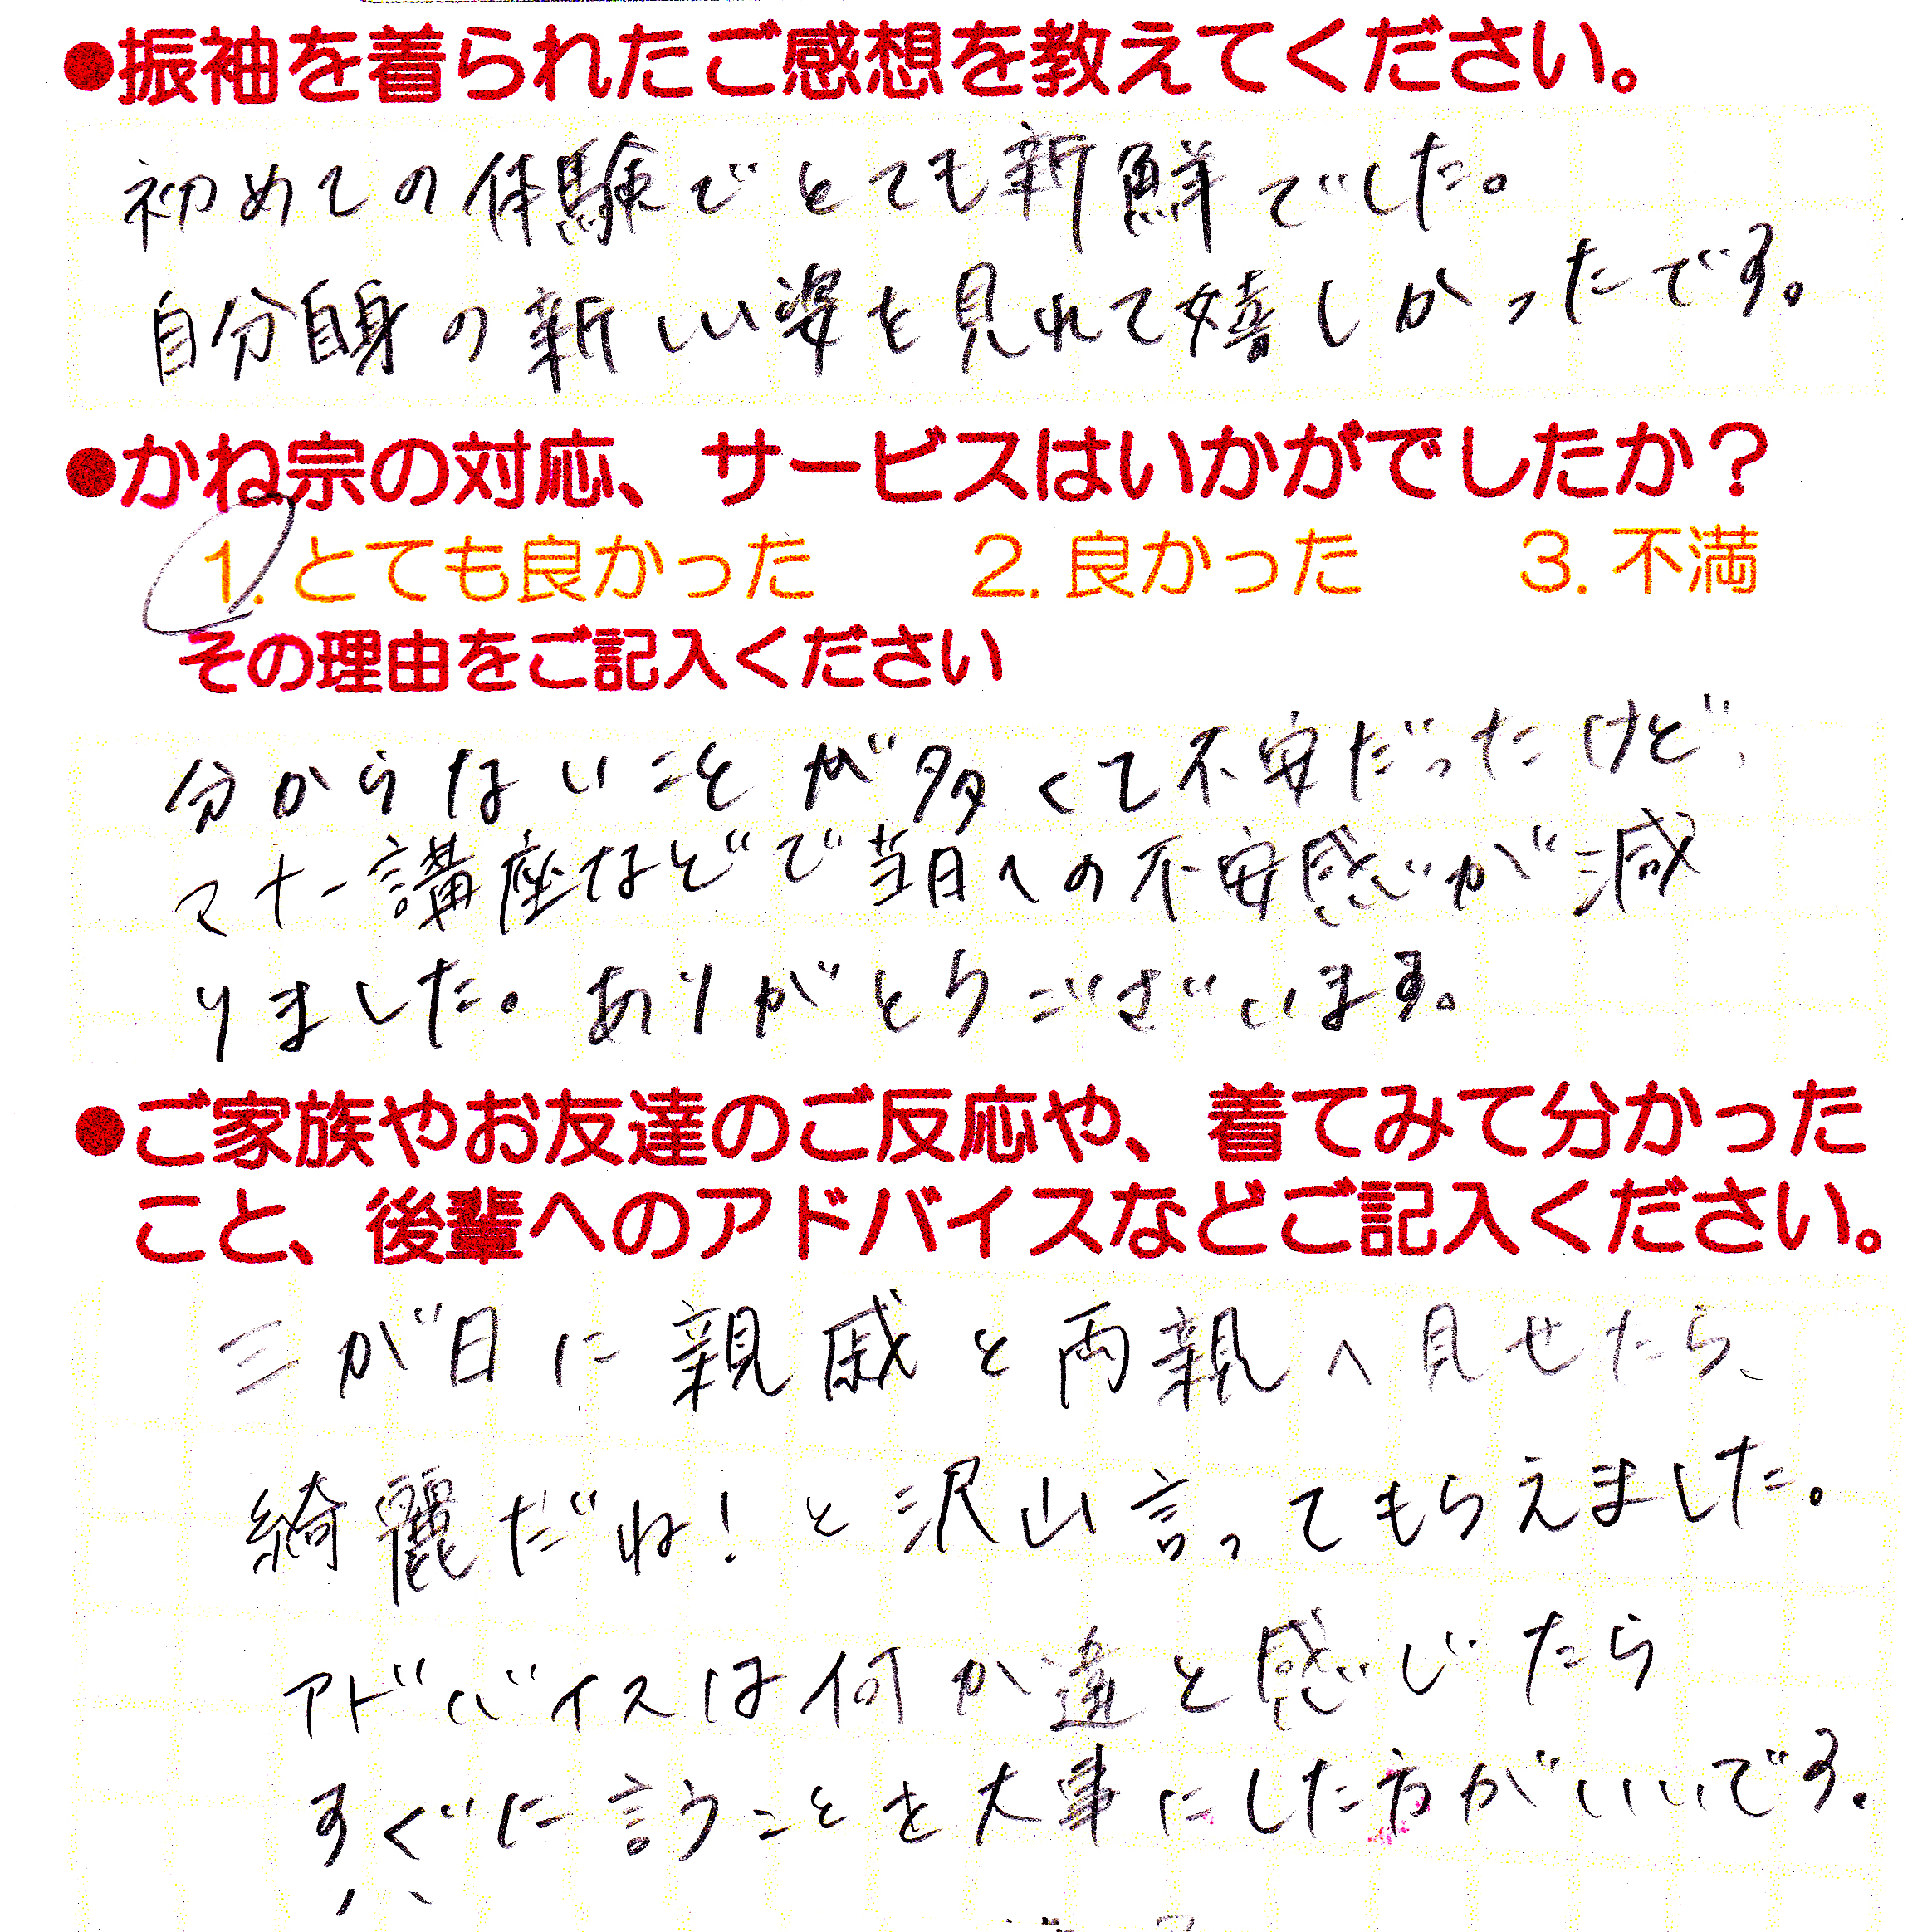 ●振袖を着られたご感想を教えてください。
初めての体験でとても新鮮でした。
自分自身の新しい姿を見れて嬉しかったです。
●かね宗の対応、サービスはいかがでしたか？
1. とても良かった 2. 良かった 3. 不満
その理由をご記入ください
分からないことが多くて不安だったけど、
マナー講座などで当日への不安感が減
りました。ありがとうございます。
●ご家族やお友達のご反応や、着てみて分かった
こと、後輩へのアドバイスなどご記入ください。
三が日に親戚と両親へ見せたら、
綺麗だね！と沢山言ってもらえました。
アドバイスは何か違と感じたら
すぐに言うことを大事にした方がいいです。